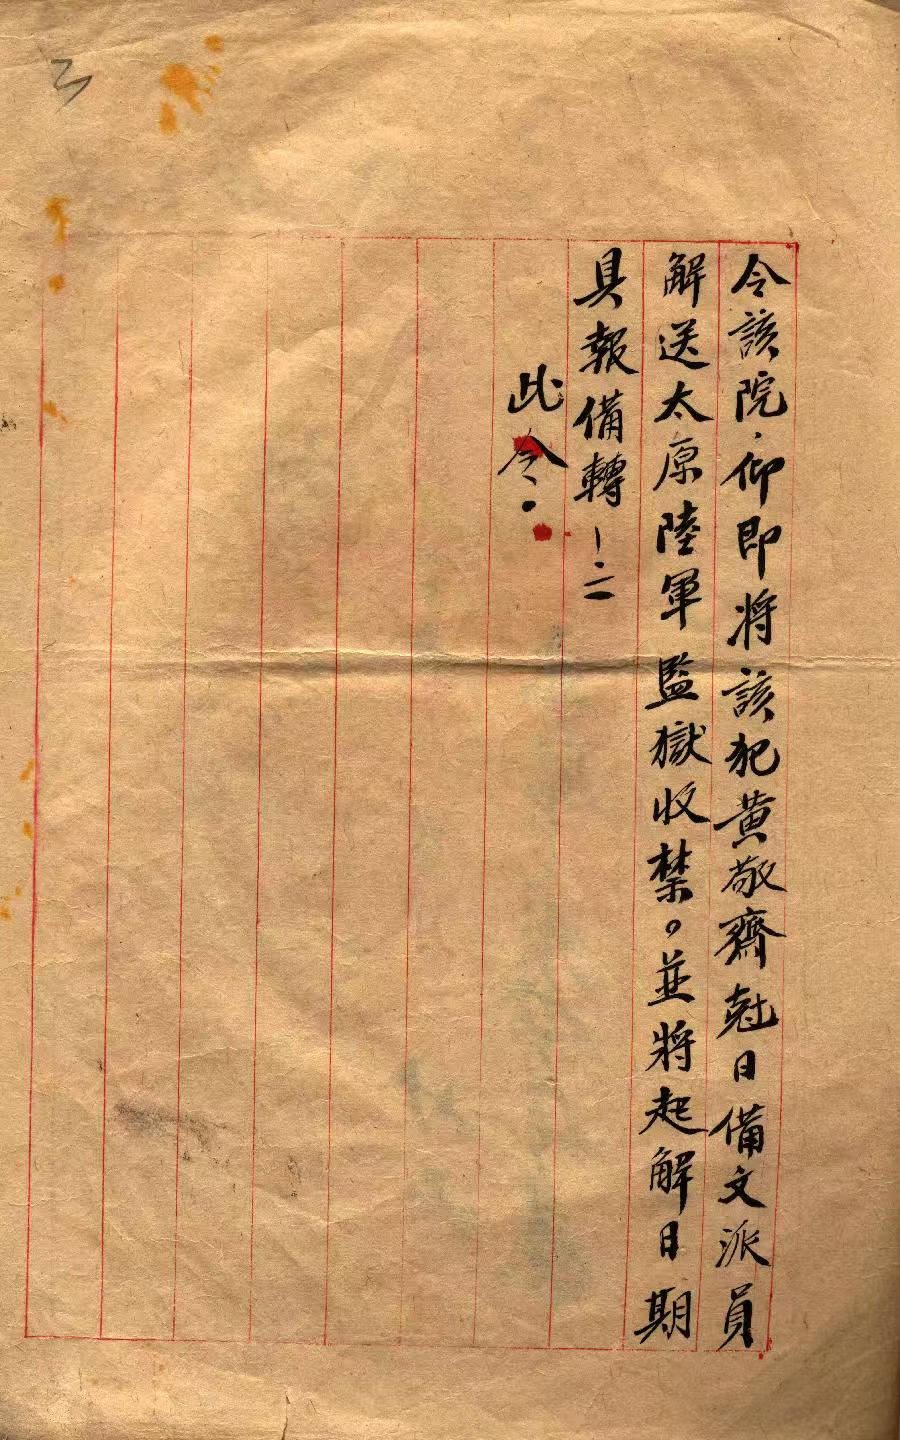 令該院，仰即將該犯黄敬齋尅日備文派員
解送太原陸軍監獄收禁。並將起解日期
具報備轉！二
此令。